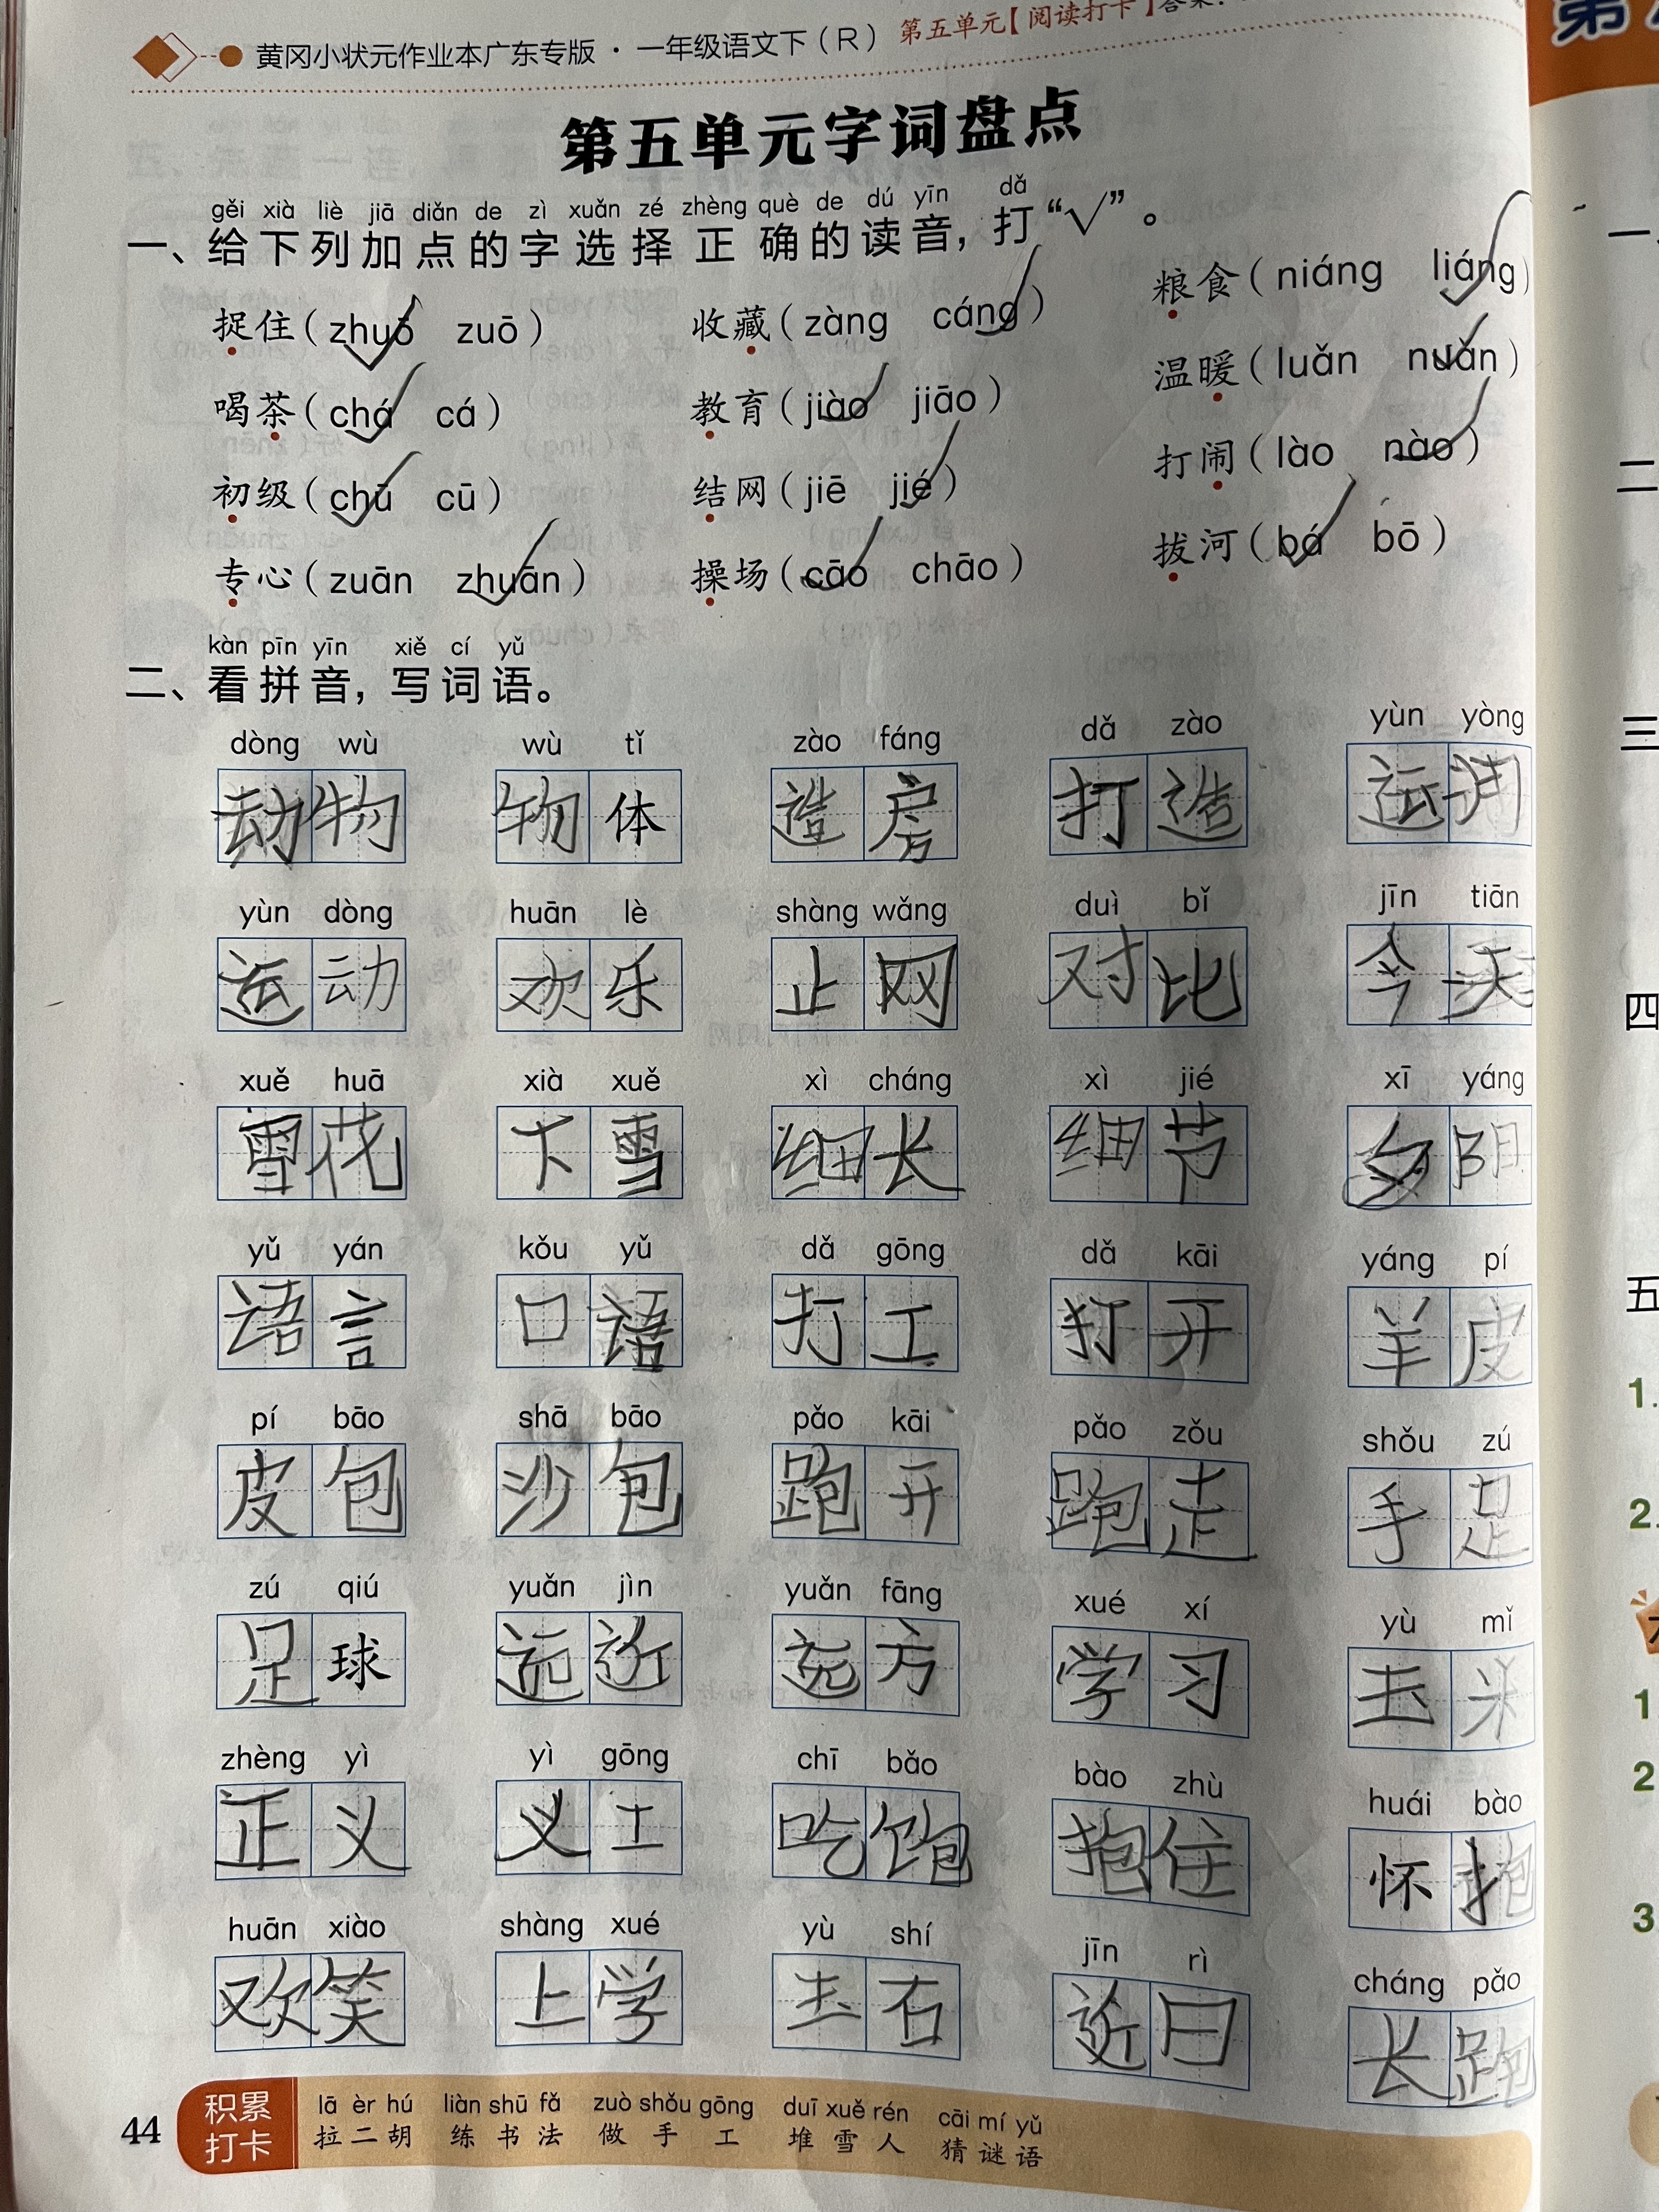 黄冈小状元作业本广东专版 · 一年级语文下（R） 第五单元【阅读打卡】答案：
第五单元字词盘点
gěi xià liè jiā diǎn de zì xuǎn zé zhèng què de dú yīn dǎ
一、给下列加点的字选择正确的读音，打“√”。
捉住（zhuō zuō） 收藏（zàng cáng） 粮食（niáng liáng）
喝茶（chá cá） 教育（jiào jiāo） 温暖（luǎn nuǎn）
初级（chū cū） 结网（jiē jié） 打闹（lào nào）
专心（zuān zhuān） 操场（cāo chāo） 拔河（bá bō）
kàn pīn yīn xiě cí yǔ
二、看拼音，写词语。
dòng wù wù tǐ zào fáng dǎ zào yùn yòng
动物 物体 造房 打造 运用
yùn dòng huān lè shàng wǎng duì bǐ jīn tiān
运动 欢乐 止网 对比 今天
xuě huā xià xuě xì cháng xì jié xī yáng
雪花 下雪 细长 细节 夕阴
yǔ yán kǒu yǔ dǎ gōng dǎ kāi yáng pí
语言 口语 打工 打开 羊皮
pí bāo shā bāo pǎo kāi pǎo zǒu shǒu zú
皮包 沙包 跑开 跑走 手足
zú qiú yuǎn jìn yuǎn fāng xué xí yù mǐ
足球 远近 远方 学习 玉米
zhèng yì yì gōng chī bǎo bào zhù huái bào
正义 义工 吃饱 抱住 怀抱
huān xiào shàng xué yù shí jīn rì cháng pǎo
欢笑 上学 玉石 近日 长跑
44 积累打卡
lā èr hú liàn shū fǎ zuò shǒu gōng duī xuě rén cāi mí yǔ
拉二胡 练书法 做手工 堆雪人 猜谜语
一、
二
三
四
五
1.
2.
1
2
3